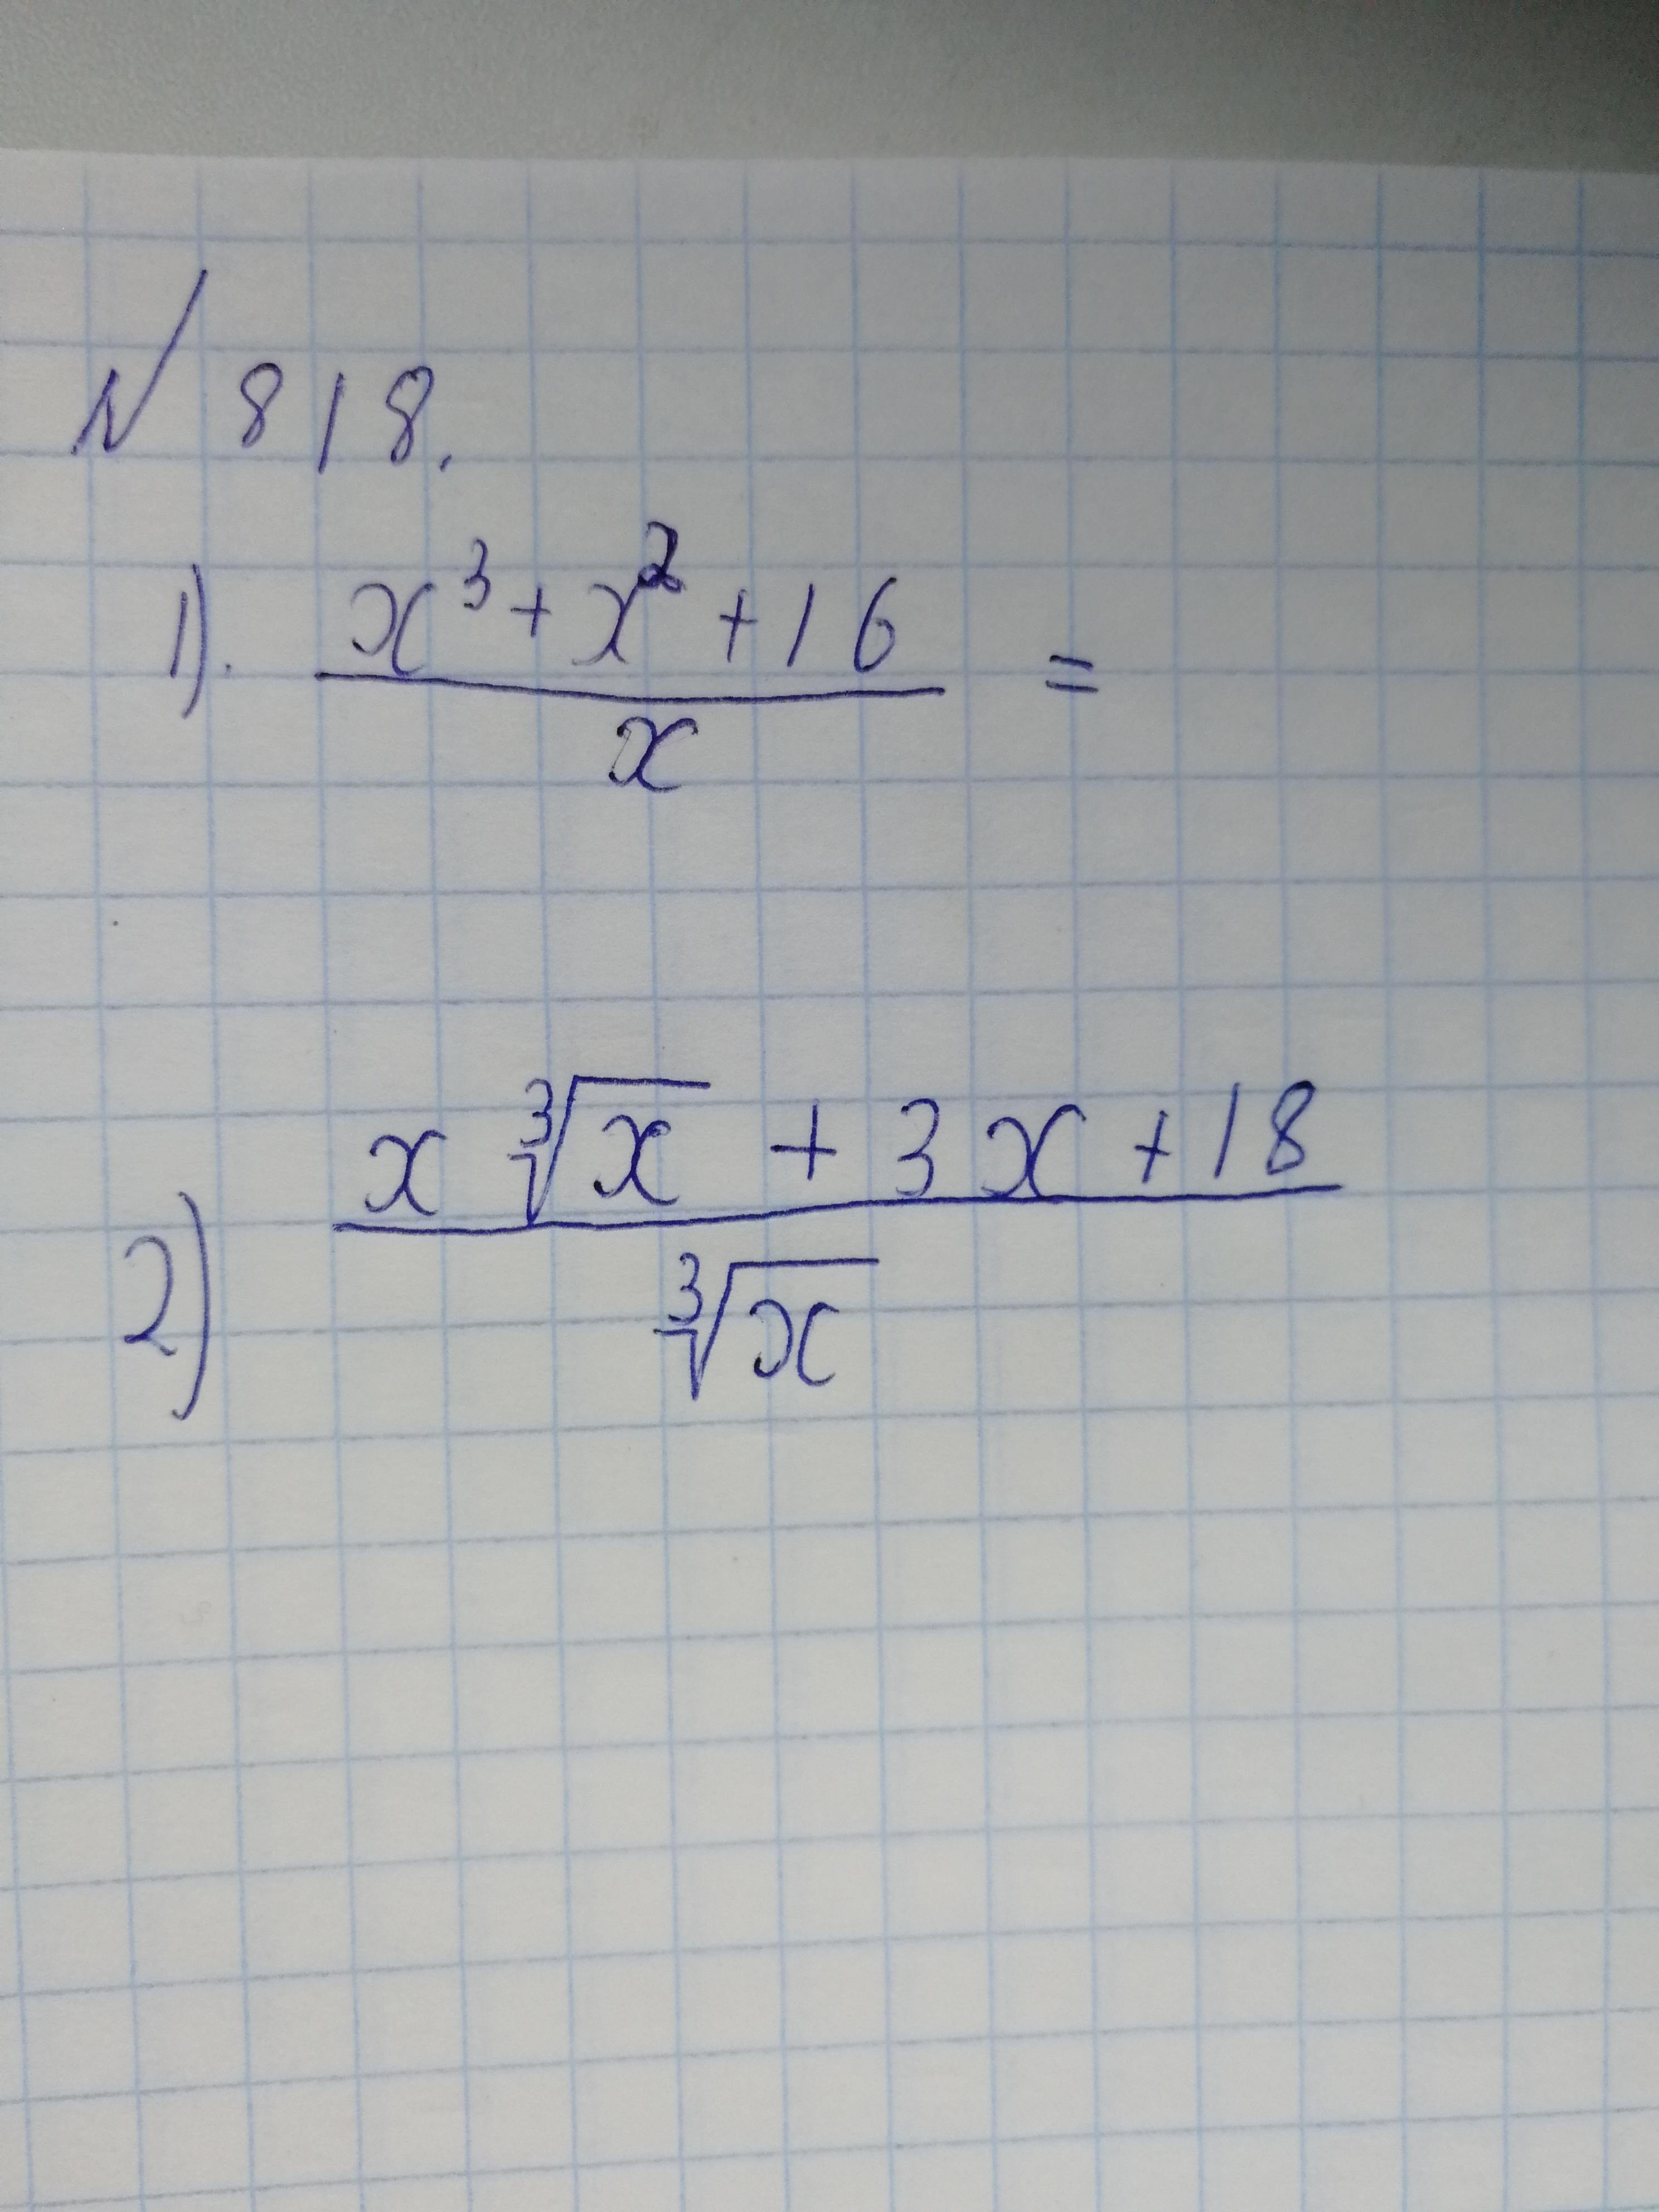 № 818.
1). x³ + x² + 16 / x =
2) x ∛x + 3x + 18 / ∛x